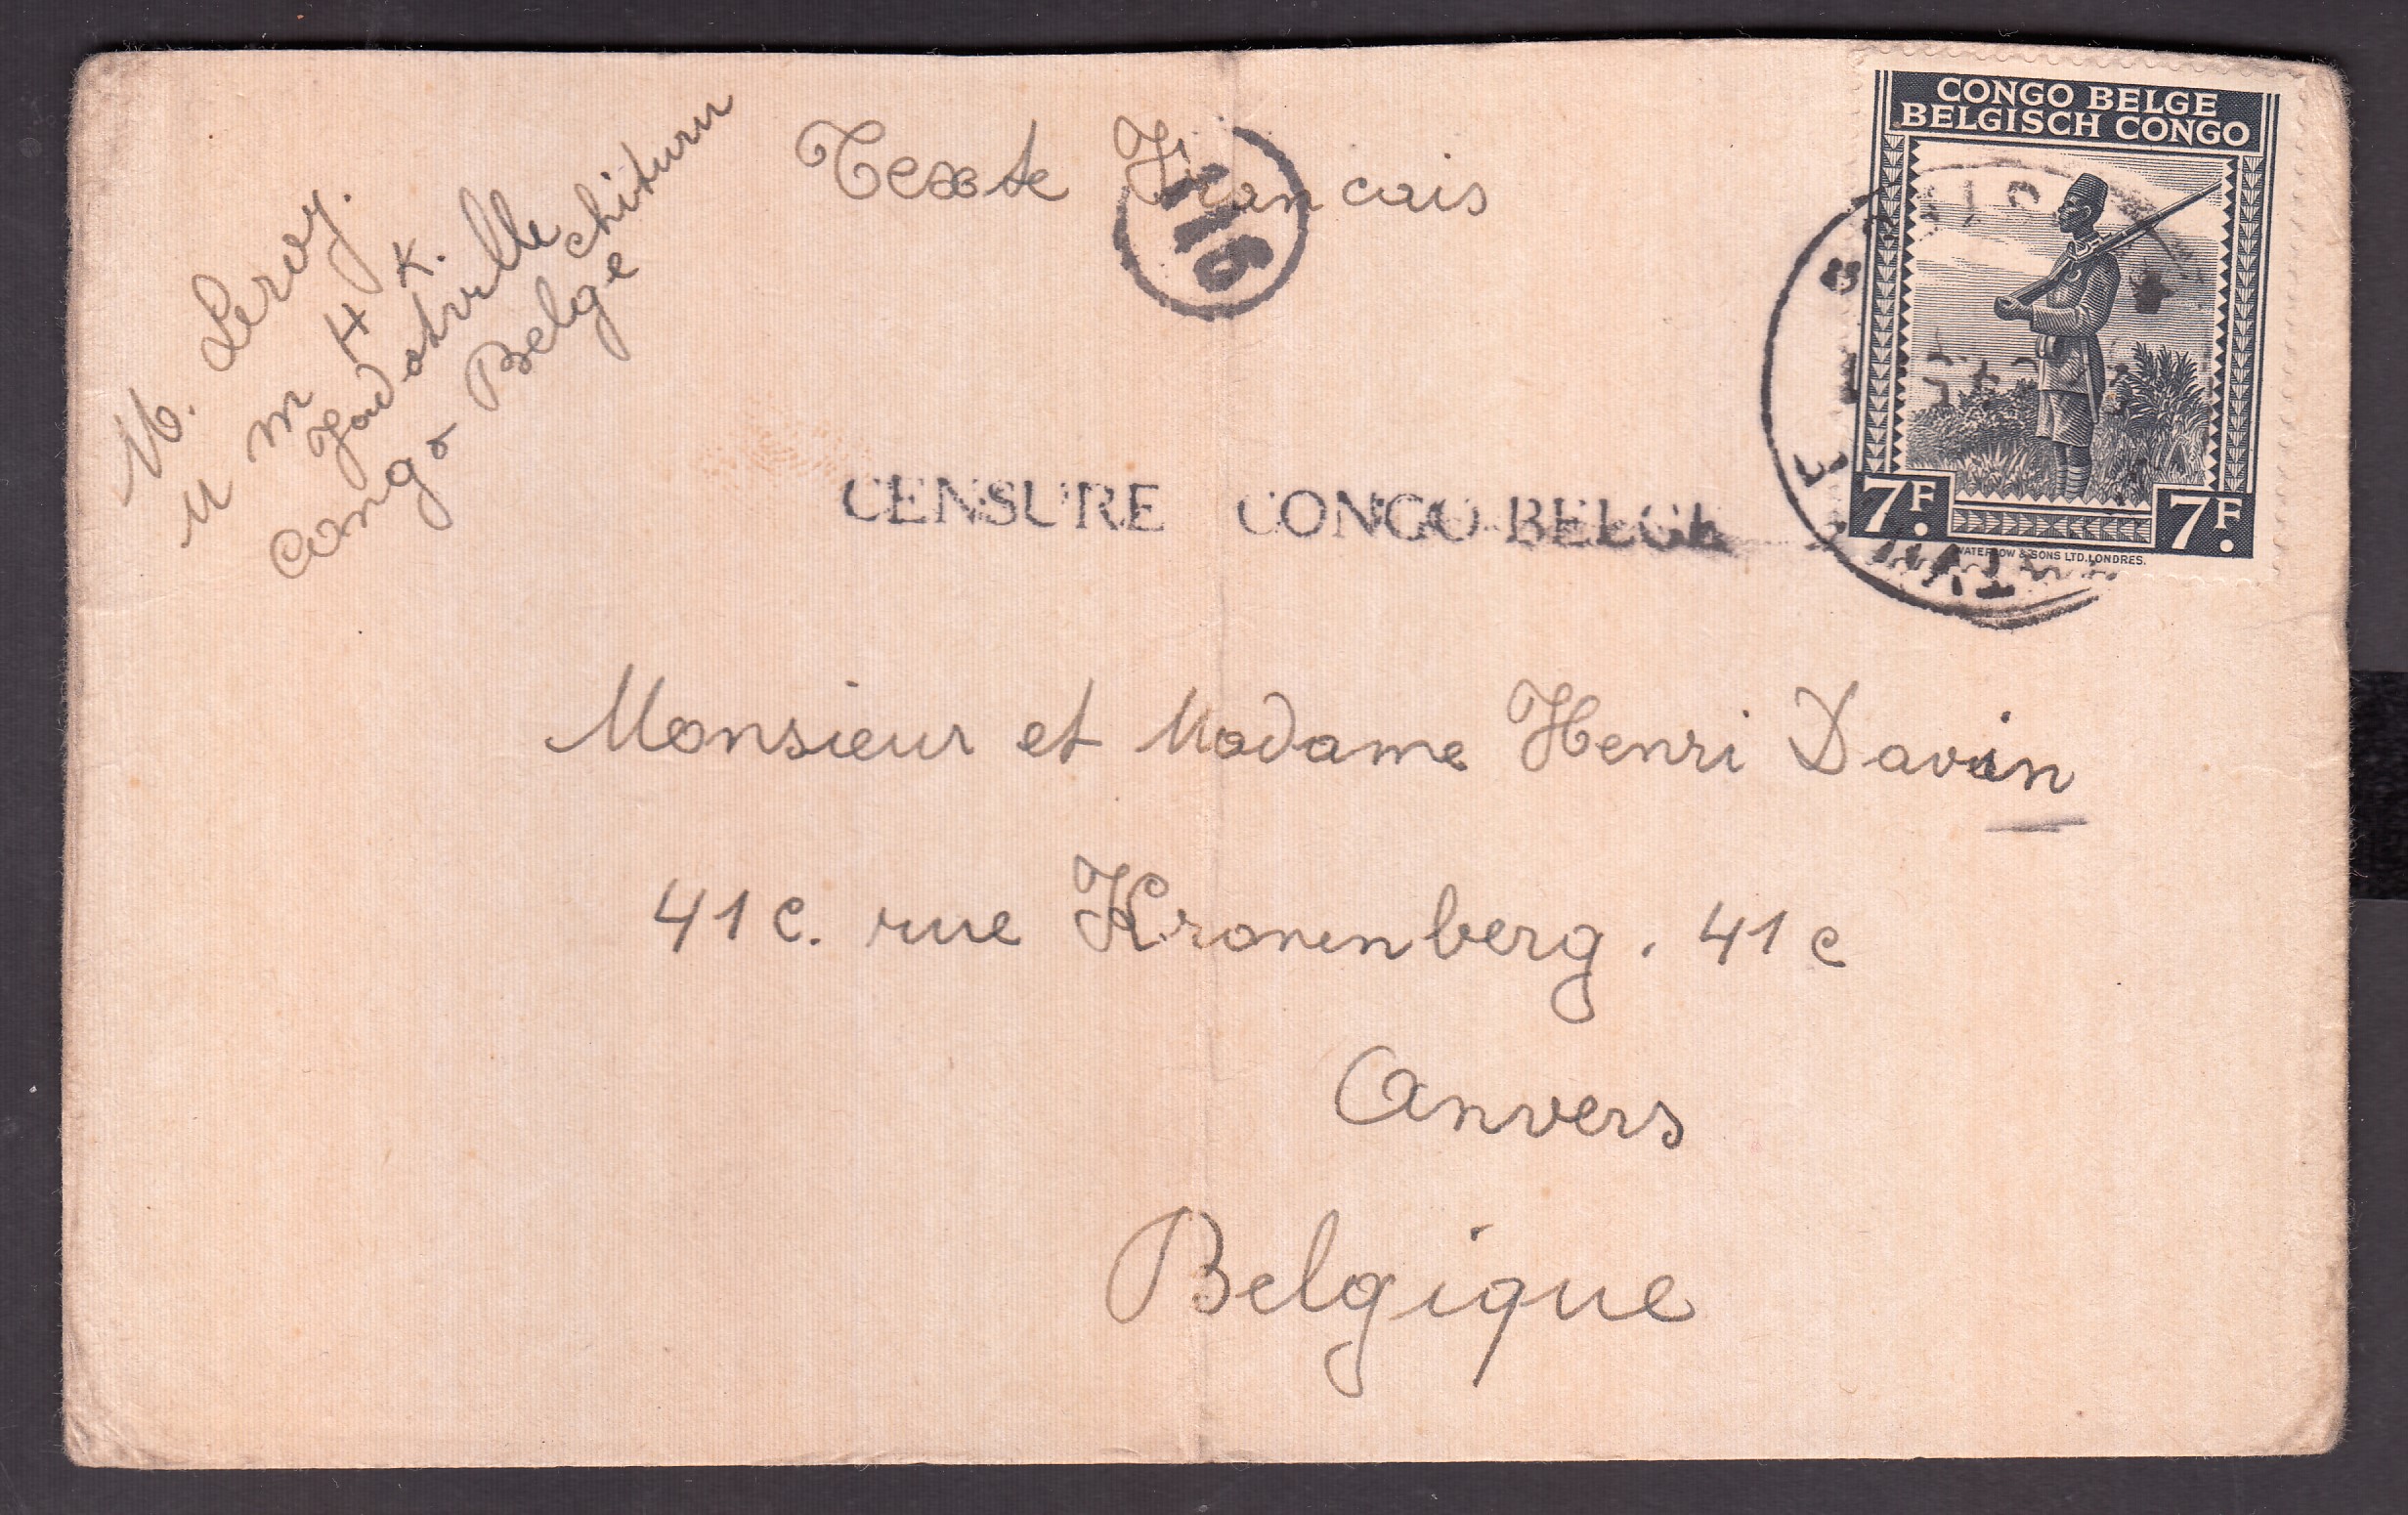 M. Leroy.
U M H K.
Jadotville chituru
Congo Belge
Texte Francais
116
CONGO BELGE
BELGISCH CONGO
7F. 7F.
WATERLOW & SONS LTD. LONDRES.
CENSURE CONGO BELGE
Monsieur et Madame Henri Davin
41 c. rue Kronenberg. 41 c
Anvers
Belgique